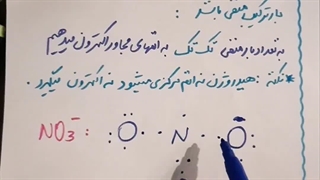 بار ترکیب منفی باشد
به تعداد بار منفی تک تک به اتمهای مجاور الکترون میدهیم
* نکته: هیدروژن نه اتم مرکزی میشود نه الکترون میگیرد.
NO₃⁻: O N O